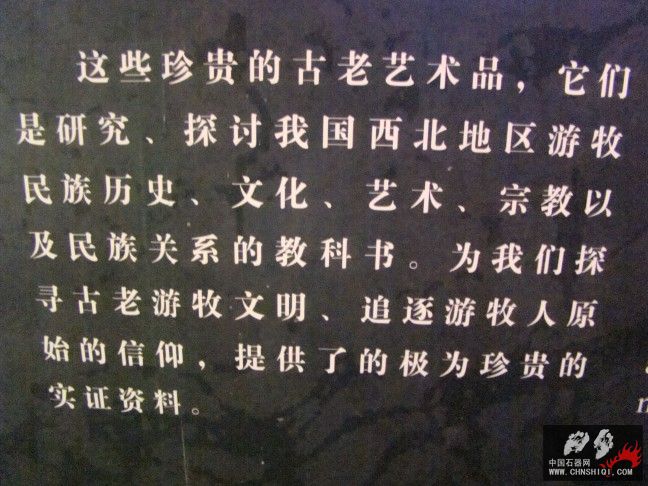 这些珍贵的古老艺术品，它们
是研究、探讨我国西北地区游牧
民族历史、文化、艺术、宗教以
及民族关系的教科书。为我们探
寻古老游牧文明、追逐游牧人原
始的信仰，提供了的极为珍贵的
实证资料。
中国石器网
WWW.CHNSHIQI.COM